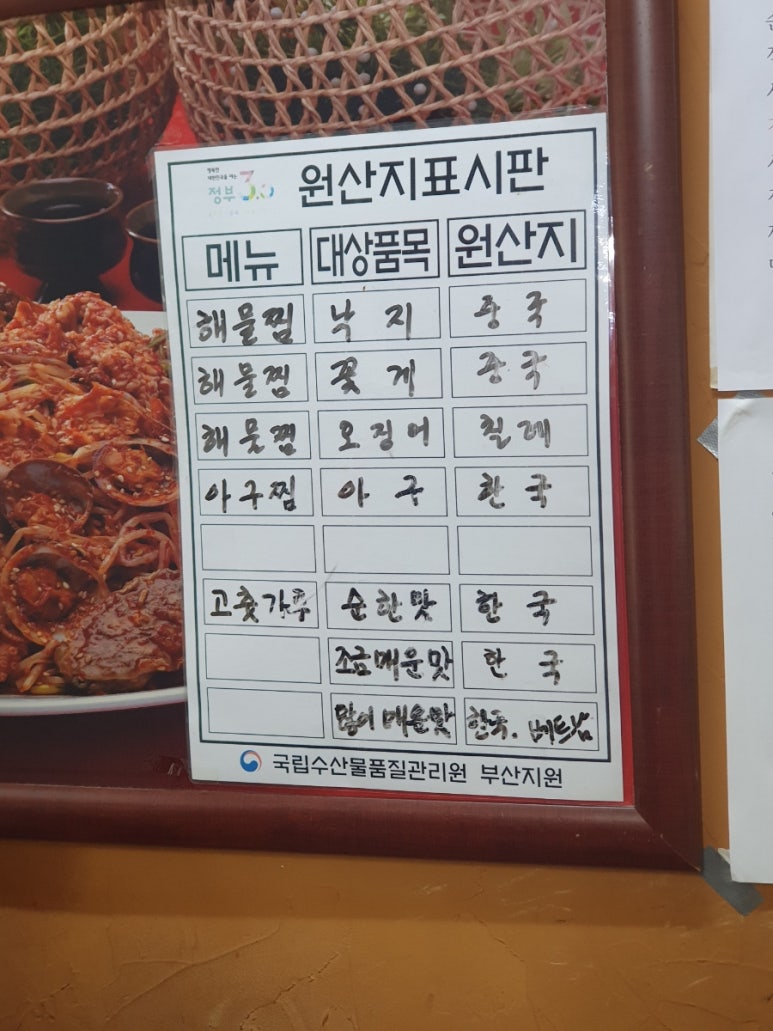 행복한
대한민국을 여는
정부 3.0
원산지표시판
메뉴 대상품목 원산지
해물찜 낙지 중국
해물찜 꽃게 중국
해물찜 오징어 칠레
아구찜 아구 한국
고춧가루 순한맛 한국
조금매운맛 한국
많이매운맛 한국. 베트남
국립수산물품질관리원 부산지원